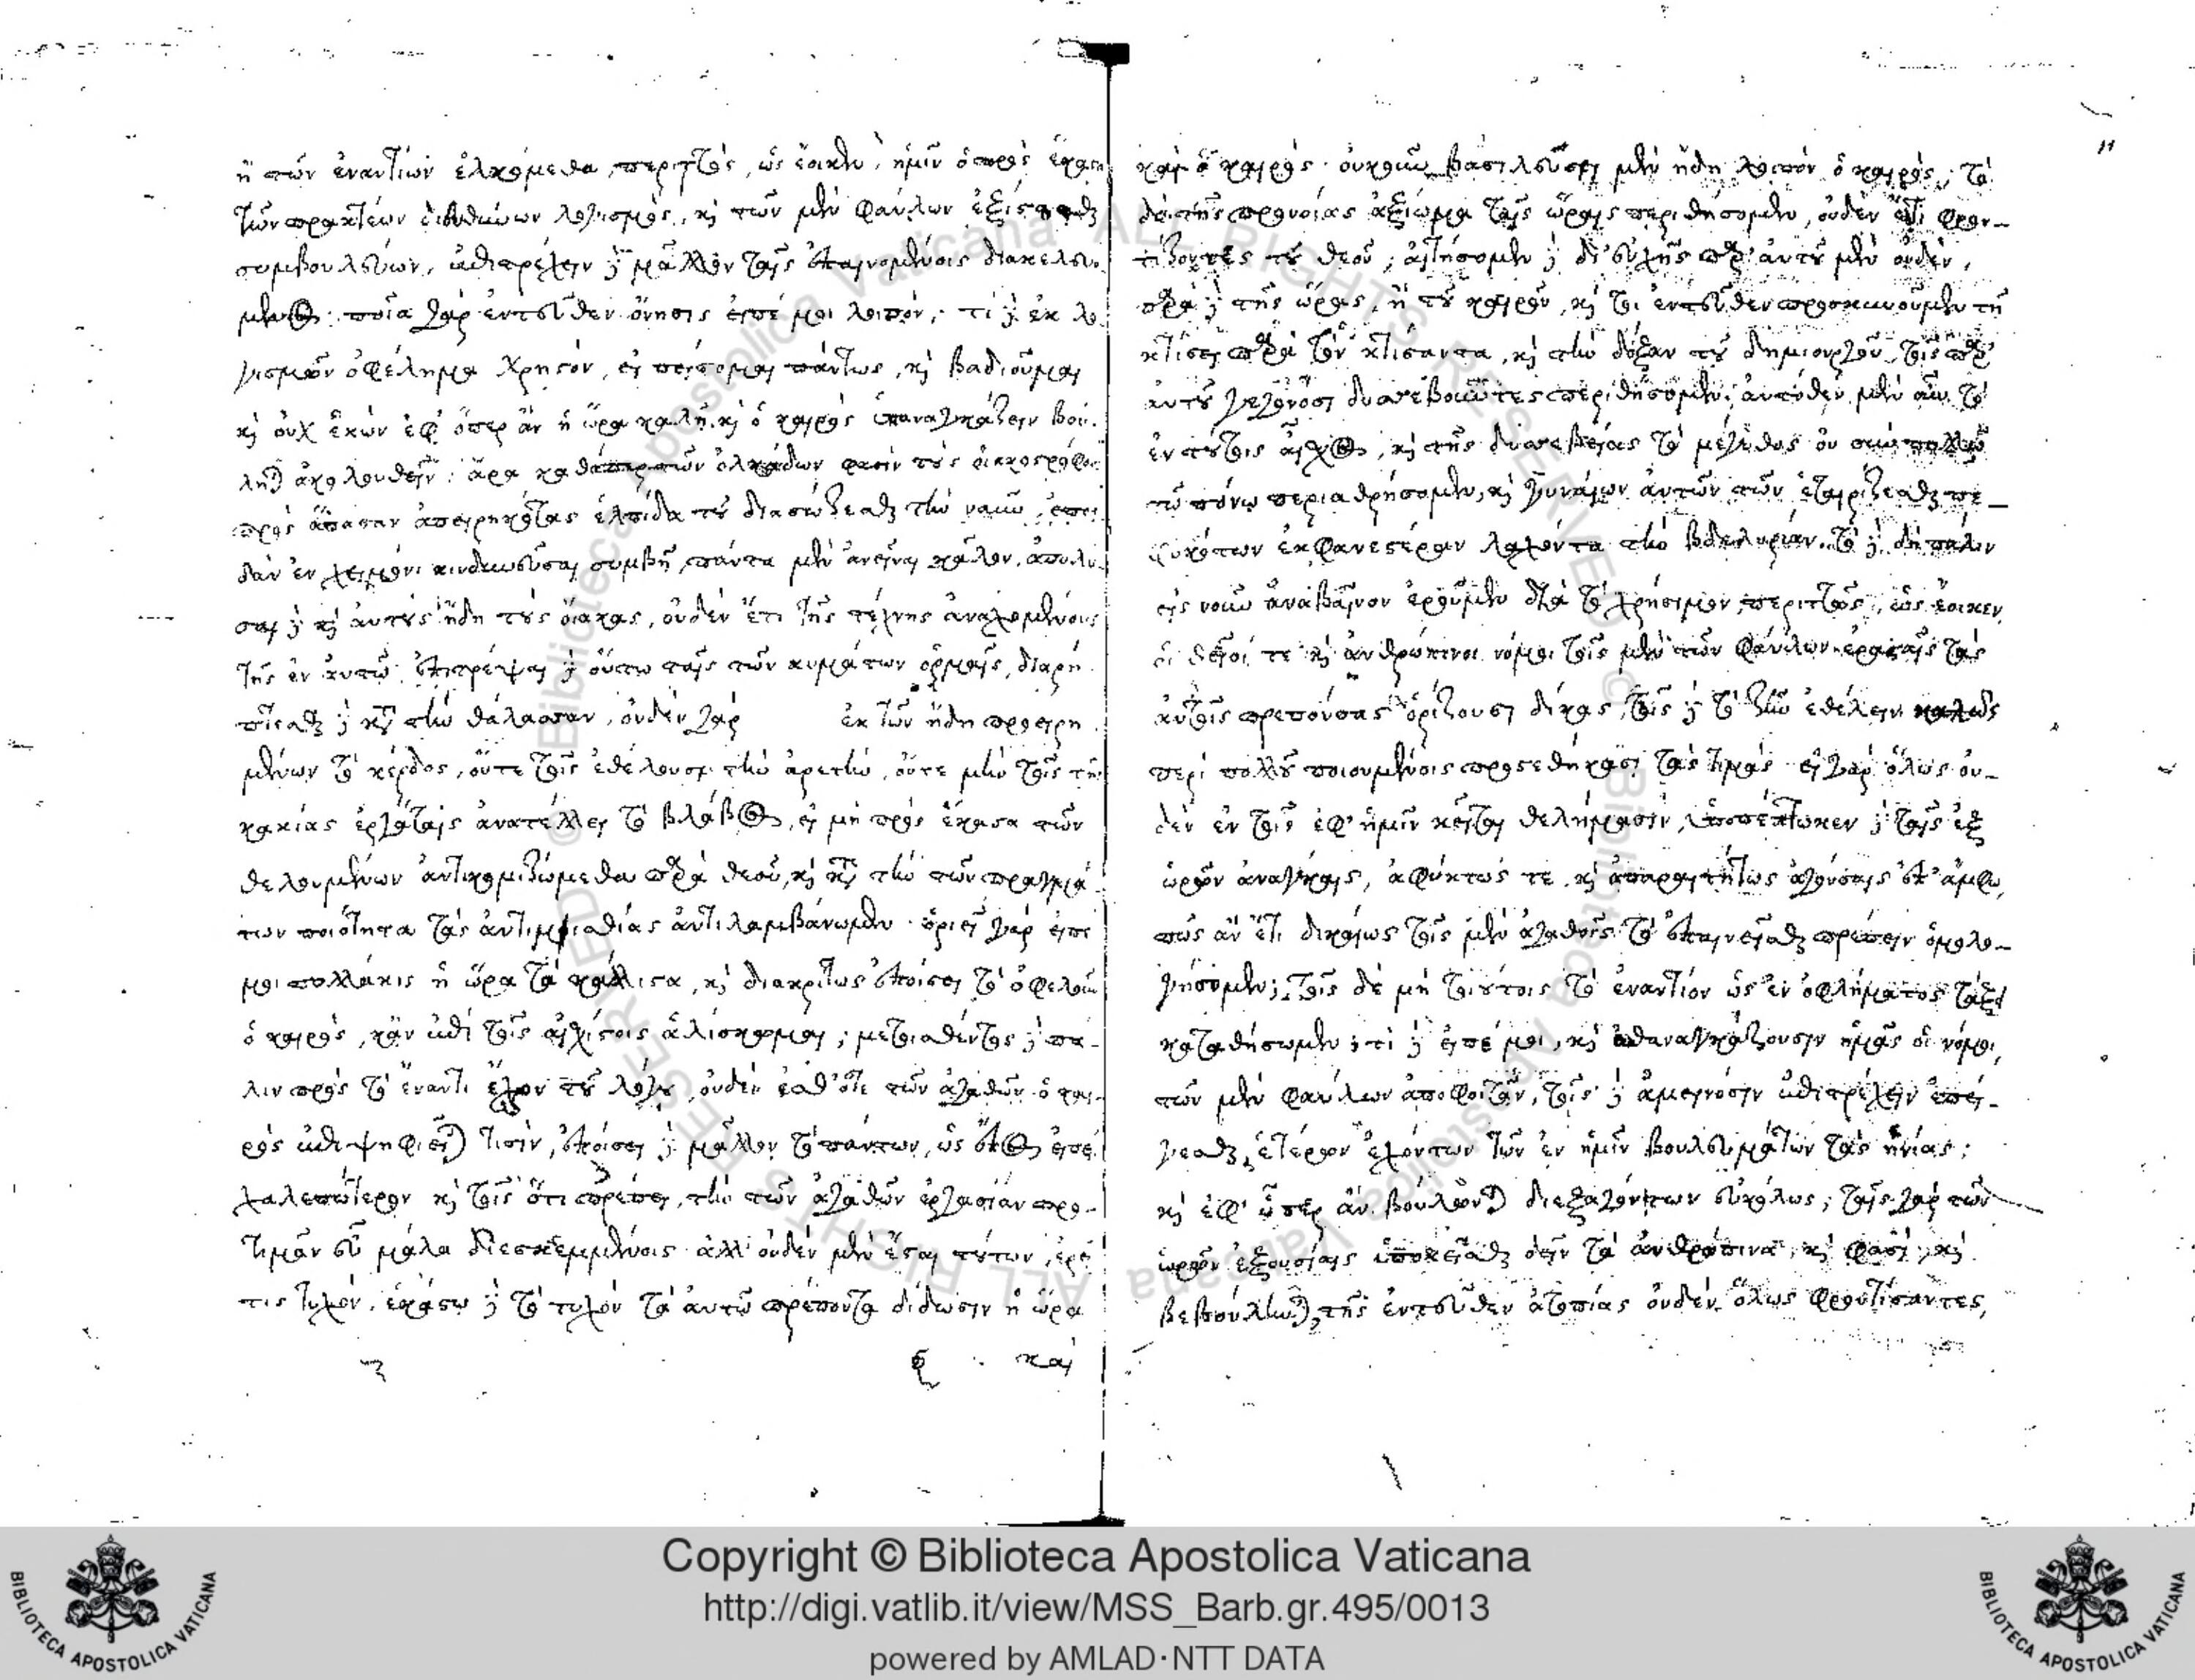 ἢ τῶν ἐναντίων ἑλκόμεθα, περιττὸς, ὡς ἔοικεν, ἡμῖν ὁ πρὸς ἕκαστα
τῶν πρακτέων διευθύνων λογισμὸς, καὶ τῶν μὲν φαύλων ἐξίστασθαι
συμβουλεύων, ἐπιτρέχειν δὲ μᾶλλον τοῖς ἐπαινουμένοις διακελευό-
μενος· ποία γὰρ ἐντεῦθεν ὄνησις εἰπέ μοι λοιπόν; τί δὲ ἐκ λο-
γισμῶν ὀφέλημα χρηστόν, εἰ πείσομαι πάντως, καὶ βαδιοῦμαι
καὶ οὐχ ἑκὼν ἐφ' ὅπερ ἂν ἡ ὥρα καλῇ, καὶ ὁ καιρὸς ἐπαναγκάζειν βού-
ληται ἀκολουθεῖν; ἆρα καθάπερ τῶν ὁλκάδων φασὶν τοὺς οἰακοστρόφους
πρὸς ἅπασαν ἀπειρηκότας ἐλπίδα τοῦ διασώζεσθαι τὴν ναῦν, ἐπει-
δὰν ἐν χειμῶνι κινδυνεῦσαι συμβῇ, πάντα μὲν ἀνεῖναι κάλων, ἀπολῦ-
σαι δὲ καὶ αὐτοὺς ἤδη τοὺς οἴακας, οὐδὲν ἔτι τῆς τέχνης ἀναλομένους
τῆς ἐν αὐτῷ· ἐπιτρέψαι δὲ οὕτω ταῖς τῶν κυμάτων ὁρμαῖς, διαρρι-
πτεῖσθαι δὲ κατὰ τὴν θάλασσαν, οὐδὲν γὰρ ἐκ τῶν ἤδη προειρη-
μένων τὸ κέρδος, οὔτε τοῖς ἐθέλουσι τὴν ἀρετὴν, οὔτε μὴν τοῖς τῆς
κακίας ἐργάταις ἀνατέλλει τὸ βλάβος, εἰ μὴ πρὸς ἕκαστα τῶν
θελουμένων ἀντικομιζώμεθα παρὰ θεοῦ, καὶ κατὰ τὴν τῶν πραγμά-
των ποιότητα τὰς ἀντιμισθίας ἀντιλαμβάνωμεν· ὁριεῖ γὰρ εἰπέ
μοι πολλάκις ἡ ὥρα τὰ κάλλιστα, καὶ διακρίτως ἐποίσει τὸ ὀφελοῦν
ὁ καιρὸς, κἂν ἐπὶ τοῖς αἰσχίστοις ἁλίσκομαι; μεθιστάντος δὲ πά-
λιν πρὸς τὸ ἔναντι τοῦ λόγου, οὐδὲν ἔσθ' ὅτε τῶν ἀγαθῶν ὁ και-
ρὸς ἐπιψηφιεῖται τισὶν, ἐποίσει δὲ μᾶλλον τὸ πάντων, ὡς ἔπος εἰπεῖν
χαλεπώτερον καὶ τοῖς ὅτι πρέπει, τὴν τῶν ἀγαθῶν ἐργασίαν προ-
τιμᾶν εὖ μάλα διεσκεμμένοις· ἀλλ' οὐδὲν μὲν ἔσται τούτων, ἐρεῖ
τις τυχόν, ἑκάστῳ δὲ τὸ τυχὸν τὰ αὐτῷ πρέποντα δίδωσιν ἡ ὥρα
καὶ
11
καὶ ὁ καιρὸς· οὐκοῦν βασιλεύσει μὲν ἤδη λοιπὸν ὁ καιρὸς, τὸ
δὲ τῆς προνοίας ἀξίωμα ταῖς ὥραις περιθήσομεν, οὐδὲν ἔτι φρον-
τίζοντες τοῦ θεοῦ; αἰτήσομεν δὲ δι' εὐχῆς παρ' αὐτοῦ μὲν οὐδὲν,
παρὰ δὲ τῆς ὥρας, ἢ τοῦ καιροῦ, καί τοι ἐντεῦθεν προσκυνοῦμεν τῇ
κτίσει παρὰ τὸν κτίσαντα, καὶ τὴν δόξαν τοῦ δημιουργοῦ τοῖς παρ'
αὐτοῦ γεγονόσι δυσσεβοῦντες περιθήσομεν; αὐτόθεν μὲν οὖν τὸ
ἐν τούτοις αἶσχος, καὶ τῆς δυσσεβείας τὸ μέγεθος οὐ σὺν πολλῷ
τῷ πόνῳ περιαθρήσομεν, καὶ γυναίων αὐτῶν τῶν ἑταιρίζεσθαι πε-
φυκότων ἐκφανεστέραν λαχόντα τὴν βδελυρίαν. τὸ δὲ δὴ πάλιν
εἰς νοῦν ἀναβαῖνον ἐροῦμεν διὰ τὸ χρήσιμον, περιττῶς, ὡς ἔοικεν,
οἱ θεῖοί τε καὶ ἀνθρώπινοι νόμοι τοῖς μὲν τῶν φαύλων ἐρασταῖς τὰς
αὐτοῖς πρεπούσας ὁρίζουσι δίκας, τοῖς δὲ τὸ ζῆν ἐθέλειν καλῶς
περὶ πολλοῦ ποιουμένοις προστεθήκασι τὰς τιμάς· εἰ γὰρ ὅλως οὐ-
δὲν ἐν τοῖς ἐφ' ἡμῖν κεῖται θελήμασιν, ὑποπέπτωκεν δὲ ταῖς ἐξ
ὡρῶν ἀνάγκαις, ἀφύκτως τε καὶ ἀπαραιτήτως ἀγούσαις ἐπ' ἄμφω,
πῶς ἂν ἔτι δικαίως τοῖς μὲν ἀγαθοῖς τὸ ἐπαινεῖσθαι πρέπειν ὁμολο-
γήσομεν; τοῖς δὲ μὴ τοιούτοις τὸ ἐναντίον ὡς ἐν ὀφλήματος τάξει
καταθήσωμεν; τί δὲ εἰπέ μοι, καὶ ἐπαναγκάζουσιν ἡμᾶς οἱ νόμοι,
τῶν μὲν φαύλων ἀποφοιτᾶν, τοῖς δὲ ἀμείνοσιν ἐπιτρέχειν ἐπεί-
γεσθαι, ἑτέρων ἐχόντων τῶν ἐν ἡμῖν βουλευμάτων τὰς ἡνίας;
καὶ ἐφ' ᾧπερ ἂν βούλωνται διεξαγόντων εὐκόλως; ταῖς γὰρ τῶν
ὡρῶν ἐξουσίαις ὑποκεῖσθαι δεῖν τὰ ἀνθρώπινα, καὶ φασὶ, καὶ
βεβούληνται, τῆς ἐντεῦθεν ἀτοπίας οὐδὲν ὅλως φροντίσαντες,
Copyright © Biblioteca Apostolica Vaticana
http://digi.vatlib.it/view/MSS_Barb.gr.495/0013
powered by AMLAD·NTT DATA